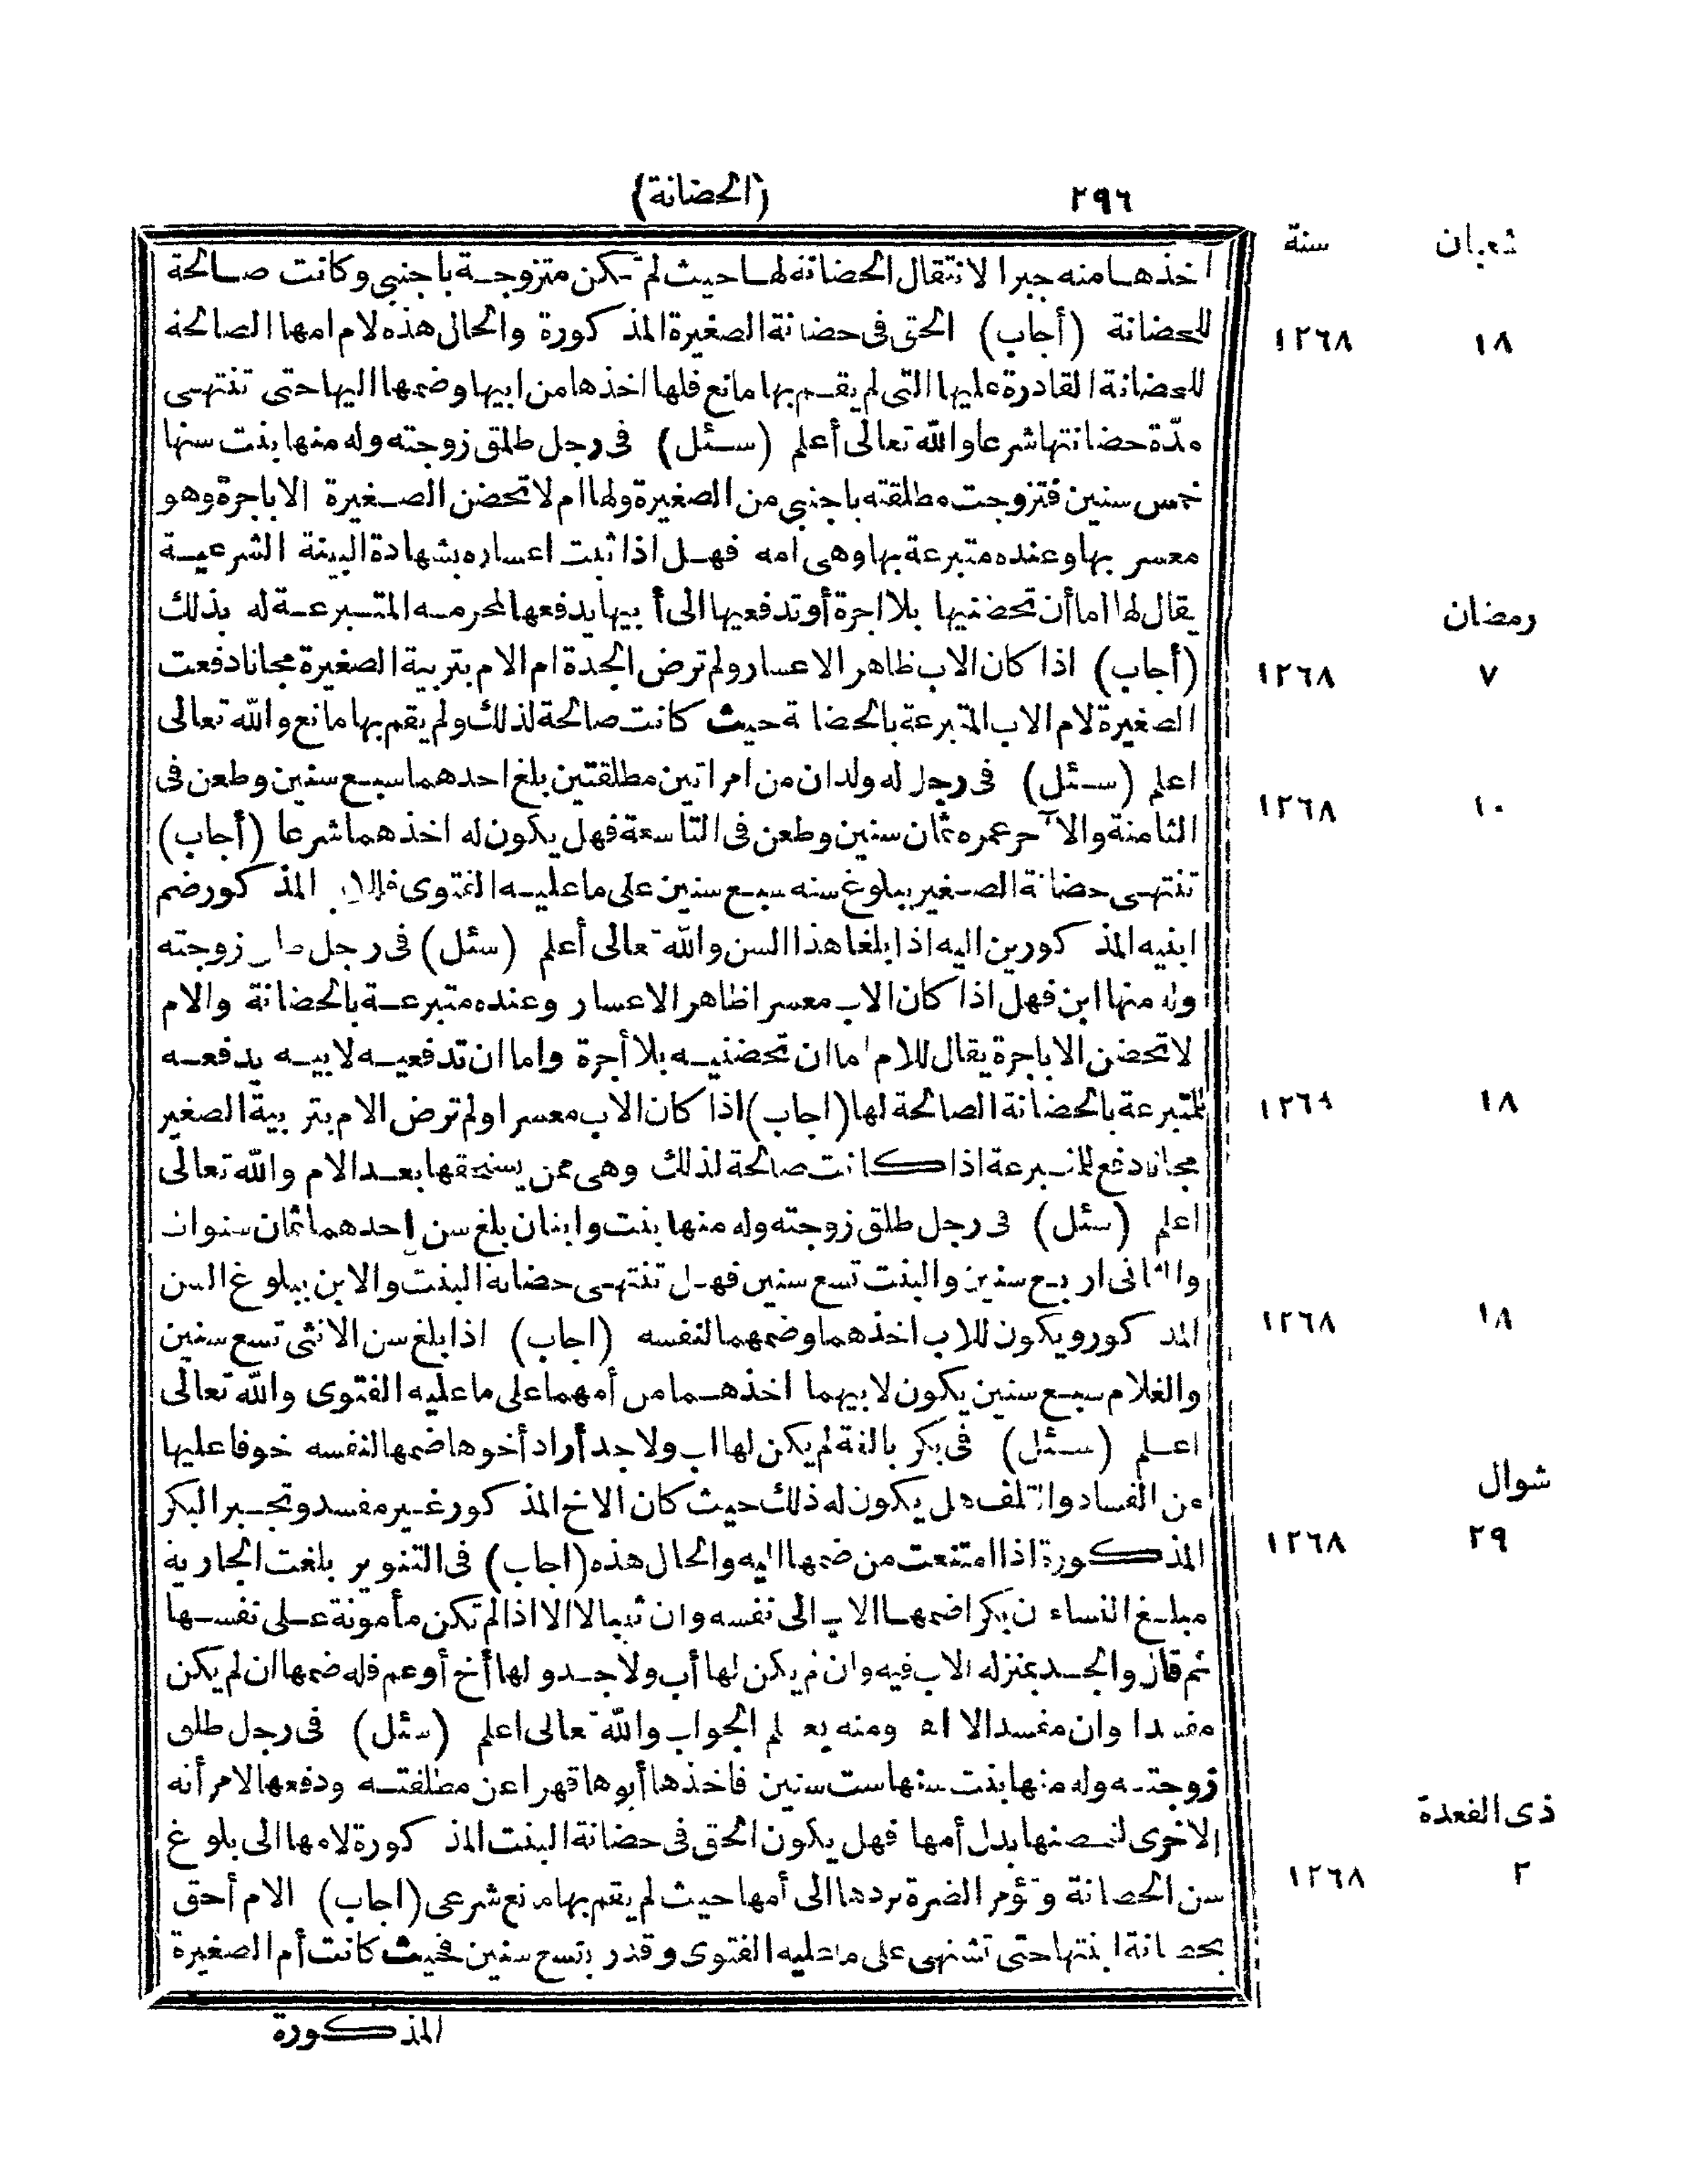 ٢٩٦
(الحضانة)
شعبان سنة
اخذها منه جبرا لانتقال الحضانة لها حيث لم تكن متزوجة باجنبى وكانت صالحة
للحضانة (أجاب) الحق فى حضانة الصغيرة المذكورة والحال هذه لام امها الصالحة
١٨ ١٢٦٨
للحضانة القادرة عليها التى لم يقم بها مانع فلها اخذها من ابيها وضمها اليها حتى تنتهى
مدّة حضانتها شرعا والله تعالى أعلم (سئل) فى رجل طلق زوجته وله منها بنت سنها
خمس سنين فتزوجت مطلقته باجنبى من الصغيرة ولها ام لا تحضن الصغيرة الا باجرة وهو
معسر بها وعنده متبرعة بها وهى امه فهل اذا ثبت اعساره بشهادة البينة الشرعية
يقال لها اما أن تحضنيها بلا اجرة أو تدفعيها الى أبيها يدفعها لمحرمه المتبرعة له بذلك
رمضان
(أجاب) اذا كان الاب ظاهر الاعسار ولم ترض الجدة ام الام بتربية الصغيرة مجانا دفعت
٧ ١٢٦٨
الصغيرة لام الاب المتبرعة بالحضانة حيث كانت صالحة لذلك ولم يقم بها مانع والله تعالى
اعلم (سئل) فى رجل له ولدان من امراتين مطلقتين بلغ احدهما سبع سنين وطعن فى
الثامنة والآخر عمره ثمان سنين وطعن فى التاسعة فهل يكون له اخذهما شرعا (أجاب)
١٠ ١٢٦٨
تنتهى حضانة الصغير ببلوغ سنه سبع سنين على ما عليه الفتوى فللاب المذكور ضم
ابنيه المذكورين اليه اذا بلغا هذا السن والله تعالى أعلم (سئل) فى رجل طلق زوجته
وله منها ابن فهل اذا كان الاب معسرا ظاهر الاعسار وعنده متبرعة بالحضانة والام
لا تحضن الا باجرة يقال للام اما ان تحضنيه بلا أجرة واما ان تدفعيه لابيه يدفعه
للمتبرعة بالحضانة الصالحة لها (اجاب) اذا كان الاب معسرا ولم ترض الام بتربية الصغير
١٨ ١٢٦٨
مجانا دفع للمتبرعة اذا كانت صالحة لذلك وهى ممن يستحقها بعد الام والله تعالى
اعلم (سئل) فى رجل طلق زوجته وله منها بنت وابنان بلغ سن احدهما ثمان سنوات
والثانى اربع سنين والبنت تسع سنين فهل تنتهى حضانة البنت والابن ببلوغ السن
المذكور ويكون للاب اخذهما وضمهما لنفسه (اجاب) اذا بلغ سن الانثى تسع سنين
١٨ ١٢٦٨
والغلام سبع سنين يكون لابيهما اخذهما من أمهما على ما عليه الفتوى والله تعالى
اعلم (سئل) فى بكر بالغة لم يكن لها اب ولا جد أراد أخوها ضمها لنفسه خوفا عليها
شوال
من الفساد والتلف هل يكون له ذلك حيث كان الاخ المذكور غير مفسد وتجبر البكر
المذكورة اذا امتنعت من ضمها اليه والحال هذه (اجاب) فى التنوير بلغت الجارية
٢٩ ١٢٦٨
مبلغ النساء ن بكرا ضمها الاب الى نفسه وان ثيبا لا الا اذا لم تكن مأمونة على نفسها
ثم قال والجد بمنزلة الاب فيه وان لم يكن لها أب ولا جد ولها أخ أو عم فله ضمها ان لم يكن
مفسدا وان مفسدا لا اه ومنه يعلم الجواب والله تعالى اعلم (سئل) فى رجل طلق
زوجته وله منها بنت سنها ست سنين فاخذها أبوها قهرا عن مطلقته ودفعها لامرأته
ذى القعدة
الاخرى لتحضنها بدل أمها فهل يكون الحق فى حضانة البنت المذكورة لامها الى بلوغ
سن الحضانة وتؤمر الضرة بردها الى أمها حيث لم يقم بها مانع شرعى (اجاب) الام أحق
٢ ١٢٦٨
بحضانة ابنتها حتى تشتهى على ما عليه الفتوى وقدر بتسع سنين فحيث كانت أم الصغيرة
المذكورة